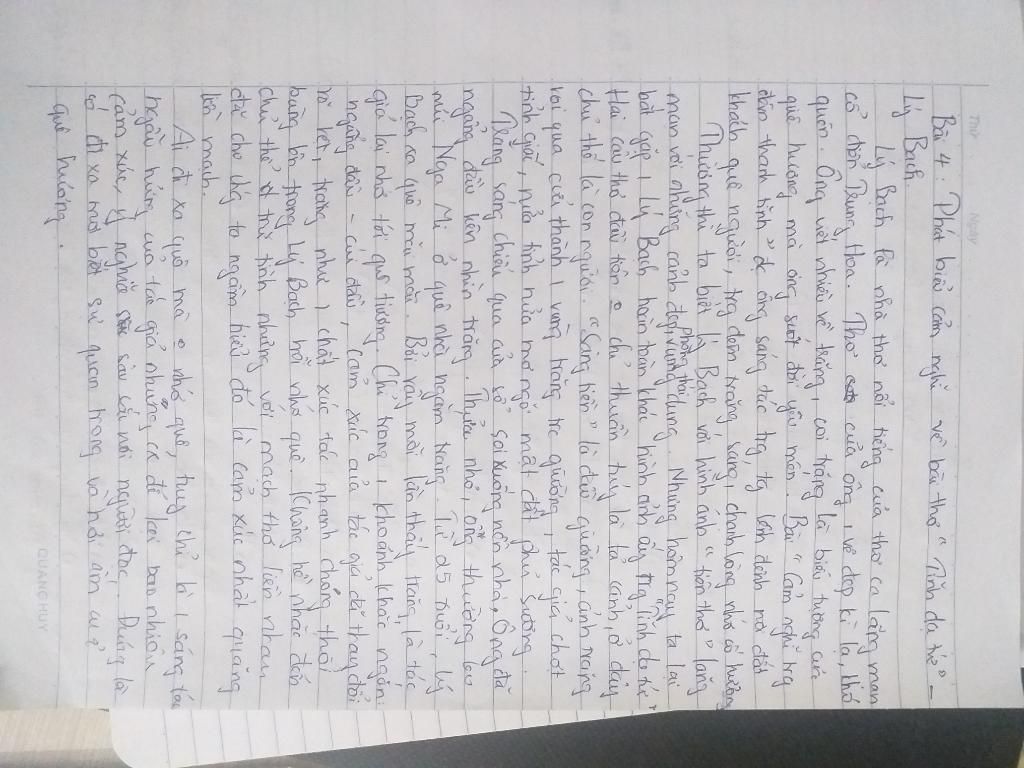 Thứ Ngày
Bài 4. Phát biểu cảm nghĩ về bài thơ "Tĩnh dạ tứ" -
Lý Bạch.
Lý Bạch là nhà thơ nổi tiếng của thơ ca lãng mạn
cổ điển Trung Hoa. Thơ của ông, vẻ đẹp kì lạ, khó
quên. Ông viết nhiều về trăng, coi trăng là biểu tượng của
quê hương mà ông suốt đời yêu mến. Bài "Cảm nghĩ trg
đêm thanh tĩnh" đc ông sáng tác trg ty lênh đênh nơi đất
khách quê người, trg đêm trăng sáng, chạnh lòng nhớ cố hương
Thường thì ta biết Lý Bạch với hình ảnh "tiên thơ" lãng
mạn với những cảnh đẹp phóng túng. Nhưng hôm nay, ta lại
bắt gặp 1 Lý Bạch hoàn toàn khác hình ảnh ấy trg "Tĩnh dạ tứ"
Hai câu thơ đầu tiên o chỉ thuần túy là tả cảnh, ở đây
chủ thể là con người. "Sàng tiền" là đầu giường, ánh trăng
rọi qua cửa thành 1 vầng trăng trc giường, tác giả chợt
tỉnh giấc, nửa tỉnh nửa mơ ngỡ mặt đất phủ sương.
Trăng sáng chiếu qua cửa sổ, soi xuống nền nhà. Ông đã
ngẩng đầu lên nhìn trăng. Thuở nhỏ, ông thường lên
núi Nga Mi ở quê nhà ngắm trăng. Từ 25 tuổi, Lý
Bạch xa quê mãi mãi. Bởi vậy mỗi lần thấy trăng, là tác
giả lại nhớ tới quê hương. Chỉ trong 1 khoảnh khắc ngắn:
ngẩng đầu - cúi đầu, cảm xúc của tác giả đã thay đổi
rõ rệt, trăng như 1 chất xúc tác nhanh chóng thổi
bùng lên trong Lý Bạch nỗi nhớ quê. Không hề nhắc đến
chủ thể trữ tình nhưng với mạch thơ liền nhau
đã cho chúng ta ngầm hiểu đó là cảm xúc nhất quán
liền mạch.
Ai đi xa quê mà o nhớ quê, tuy chỉ là 1 sáng tác
ngẫu hứng của tác giả nhưng có để lại bao nhiêu
cảm xúc, ý nghĩa sâu sắc nơi người đọc. Đúng là
có đi xa mới biết sự quan trọng và hơi ấm của
quê hương.
QUANG HUY